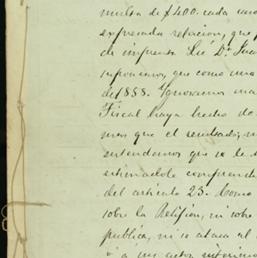 multa de $400. cada uno
expresada relacion, que p
de imprenta Lic Dn. Juan
suponemos, que como una
de 1855. Ignoramos
Fiscal haya hecho de
mas que el resultado,
entendemos que se le
estimadole comprendi
del articulo 23. Como
sobre la Petición, ni sobre
publica, ni se ataca el
ó á un actor